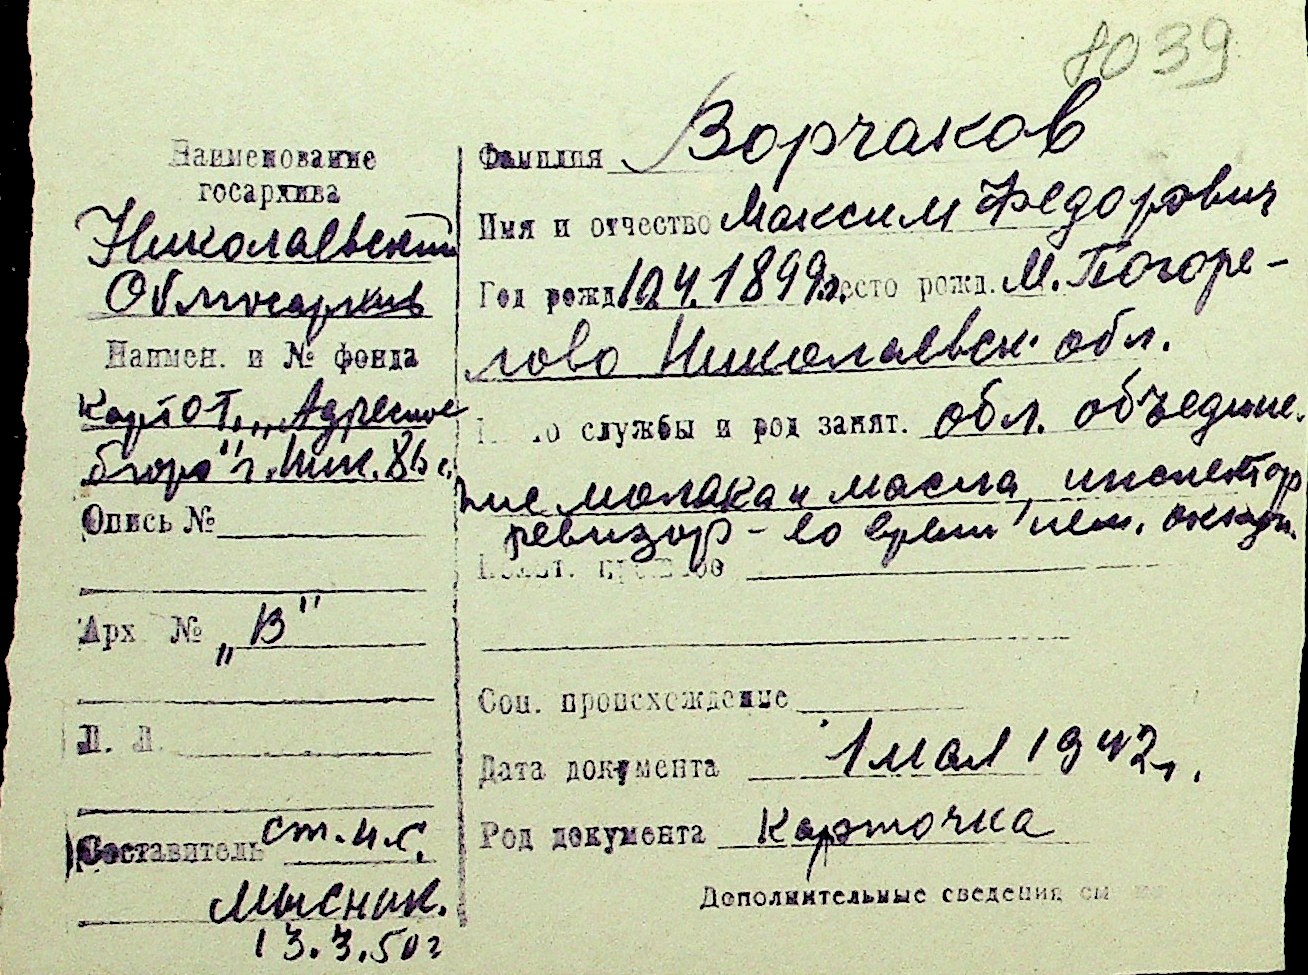 8039
Наименование
госархива
Николаевский
Облгосархив
Наимен. и № фонда
Картот. „Адресное
бюро" г. Ник.
Опись №
Арх №
„В"
Л. Л.
Составитель ст. н.с.
Мысник.
13.3.50г
Фамилия Ворчаков
Имя и отчество Максим Федорович
Год рожд 10.4.1899г. место рожд. М. Погоре-
лово Николаевск. обл.
службы и род занят. обл. объедине-
ние молока и масла, инспектор
ревизор - во время нем. оккуп.
Соц. происхождение
Дата документа 1 мая 1942г.
Род документа Карточка
Дополнительные сведения см